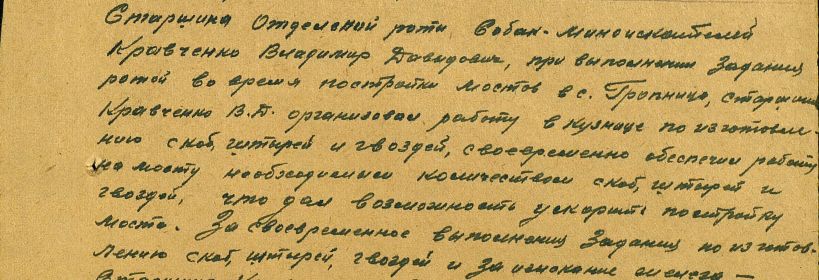 Старшина Отдельной роты Собак-Миноискателей
Кравченко Владимир Давидович, при выполнении Задания
ротой во время постройки мостов в с. Гропница, старшина
Кравченко В.Д. организовал работу в кузнице по изготовле-
нию скоб, штырей и гвоздей, своевременно обеспечил работу
на мосту необходимым количеством скоб, штырей и
гвоздей, что дал возможность ускорить постройку
моста. За своевременное выполнения Задания по изготов-
лению скоб, штырей, гвоздей и за изыскание железа —